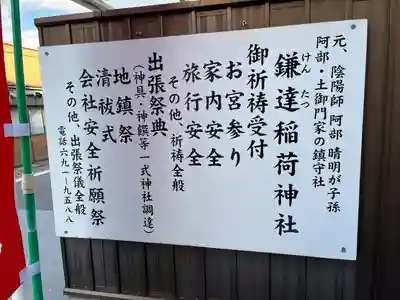 元、陰陽師 阿部 晴明が子孫
阿部・土御門家の鎮守社
鎌達稲荷神社
けん たつ
御祈祷受付
お宮参り
家内安全
旅行安全
その他、祈祷全般
出張祭典
(神具・神饌等一式神社調達)
地鎮祭
清祓式
会社安全祈願祭
その他、出張祭儀全般
電話六九一-九五八八